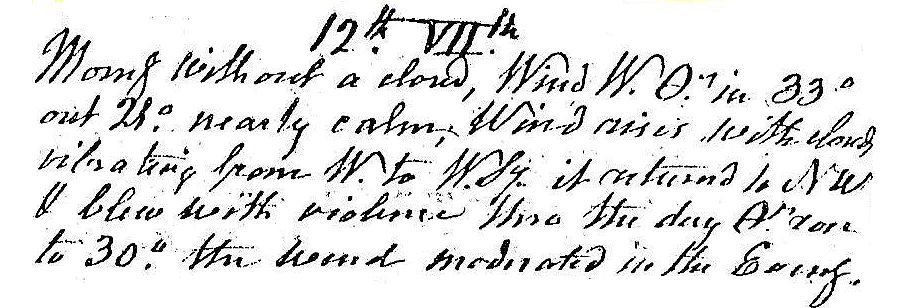 12th VIIth
Morng without a cloud, Wind W. Θr in 33°
out 28° nearly calm, Wind rises with clouds
vibrating from W. to W.Sy. it returnd to NW
& blew with violence thro the day Θr ron
to 30°. the wind moderated in the Eveng.